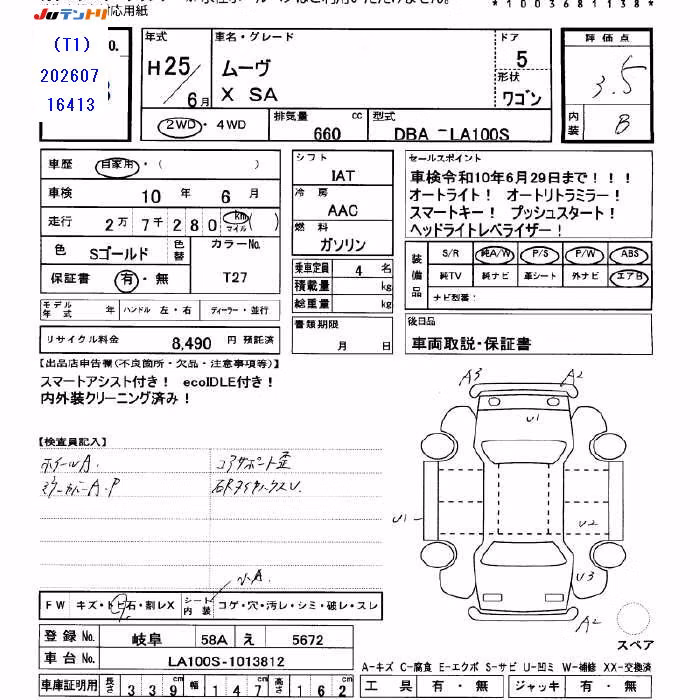 Juテントリ
応用紙
*1003681138*
(T1)
202607
16413
O.
年式 車名・グレード ドア 評価点
H25 ムーヴ 5 3.5
6月 X SA 形状 ワゴン 内装 B
2WD・4WD 排気量 660 cc 型式 DBA-LA100S
車歴 自家用・( ) シフト IAT セールスポイント
車検 10年 6月 冷房 AAC
車検令和10年6月29日まで！！！
オートライト！ オートリトラミラー！
スマートキー！ プッシュスタート！
ヘッドライトレベライザー！
走行 2万7千280 km マイル ( ) 燃料 ガソリン
色 Sゴールド 色替 カラーNo. T27
保証書 有・無
乗車定員 4 名
積載量 kg
総重量 kg
装備品 S/R 純A/W P/S P/W ABS
純TV 純ナビ 革シート 外ナビ エアB
ナビ型番：
モデル年式 年 ハンドル 左・右 ディーラー・並行
書類期限 月 日
後日品
車両取説・保証書
リサイクル料金 8,490 円 預託済
【出品店申告欄(不良箇所・欠品・注意事項等)】
スマートアシスト付き！ ecoIDLE付き！
内外装クリーニング済み！
【検査員記入】
ホイールA. コアサポート歪
ミラーカバーA・P
A3 A2
U1
U1 U2
U3
A2
スペア
シA
FW キズ・トビ石・割レX シート内装 コゲ・穴・汚レ・シミ・破レ・スレ
登録No. 岐阜 58A え 5672
車台No. LA100S-1013812
車庫証明用 長さ 339cm 幅 147cm 高さ 162cm
A-キズ C-腐食 E-エクボ S-サビ U-凹ミ W-補修 XX-交換済
工具 有・無 ジャッキ 有・無